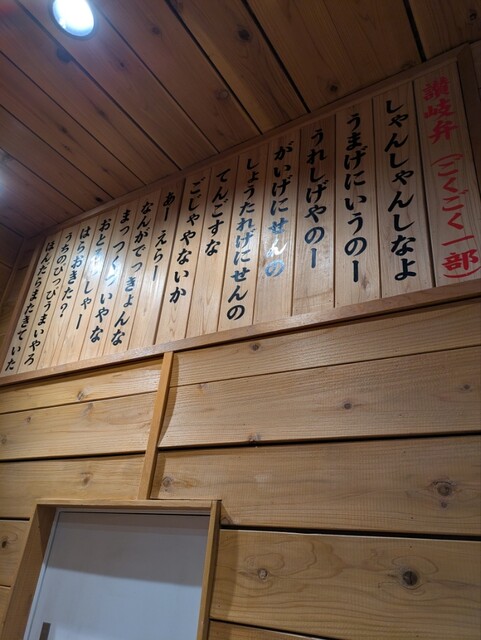 讃岐弁(ごくごく一部)
しゃんしゃんしなよ
うまげにいうのー
うれしげやのー
がいげにせんの
しょうたれげにせんの
てんごすな
ごじゃやないか
あーえらー
なんかでっきょんな
まっつくついやな
おとっしゃー
はらおきた?
うちのぴっぴうまいやろ
ほんたらまたきていた